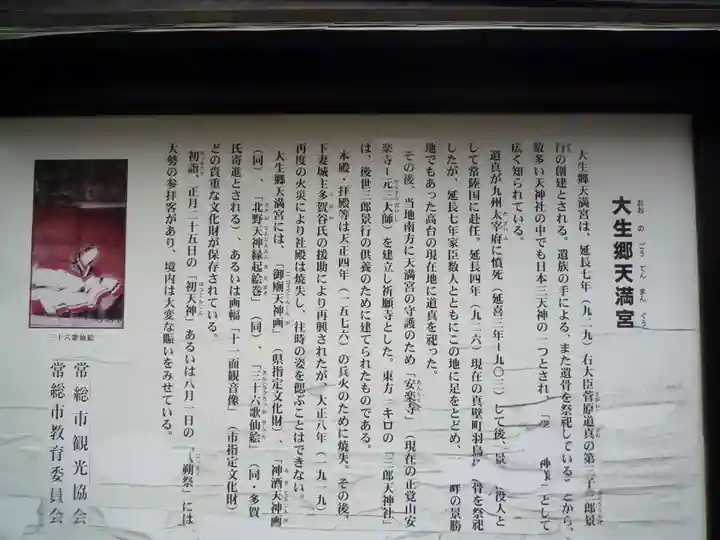 大生郷天満宮
おおのごうてんまんぐう
大生郷天満宮は、延長七年（九二九）右大臣菅原道真の第三子 郎景
行の創建とされる。遺族の手による、また遺骨を祭祀していることから、
数多い天神社の中でも日本三天神の一つとされ、 として
広く知られている。
道真が九州太宰府に憤死（延喜三年＝九〇三）して後、景 役人と
して常陸国に赴任。延長四年（九二六）現在の真壁町羽鳥に 骨を祭祀
したが、延長七年家臣数人とともにこの地に足をとどめ、 畔の景勝
地でもあった高台の現在地に道真を祀った。
その後、当地南方に天満宮の守護のため「安楽寺」（現在の正覚山安
楽寺＝元三大師）を建立し祈願寺とした。東方 キロの「三郎天神社」
は、後世三郎景行の供養のために建てられたものである。
本殿・拝殿等は天正四年（一五七六）の兵火のために焼失。その後、
下妻城主多賀谷氏の援助により再興されたが、大正八年（一九一九）
再度の火災により社殿は焼失し、往時の姿を偲ぶことはできない。
大生郷天満宮には、「御廟天神画」（県指定文化財）、「神酒天神画
（同）、「北野天神縁起絵巻」（同）、「三十六歌仙絵」（同・多賀
氏寄進とされる） あるいは画幅「十一面観音像」（市指定文化財）
どの貴重な文化財が保存されている。
初詣、正月二十五日の「初天神」あるいは八月一日の「八朔祭」には
大勢の参拝客があり、境内は大変な賑いをみせている。
三十六歌仙絵
常総市観光協会
常総市教育委員会